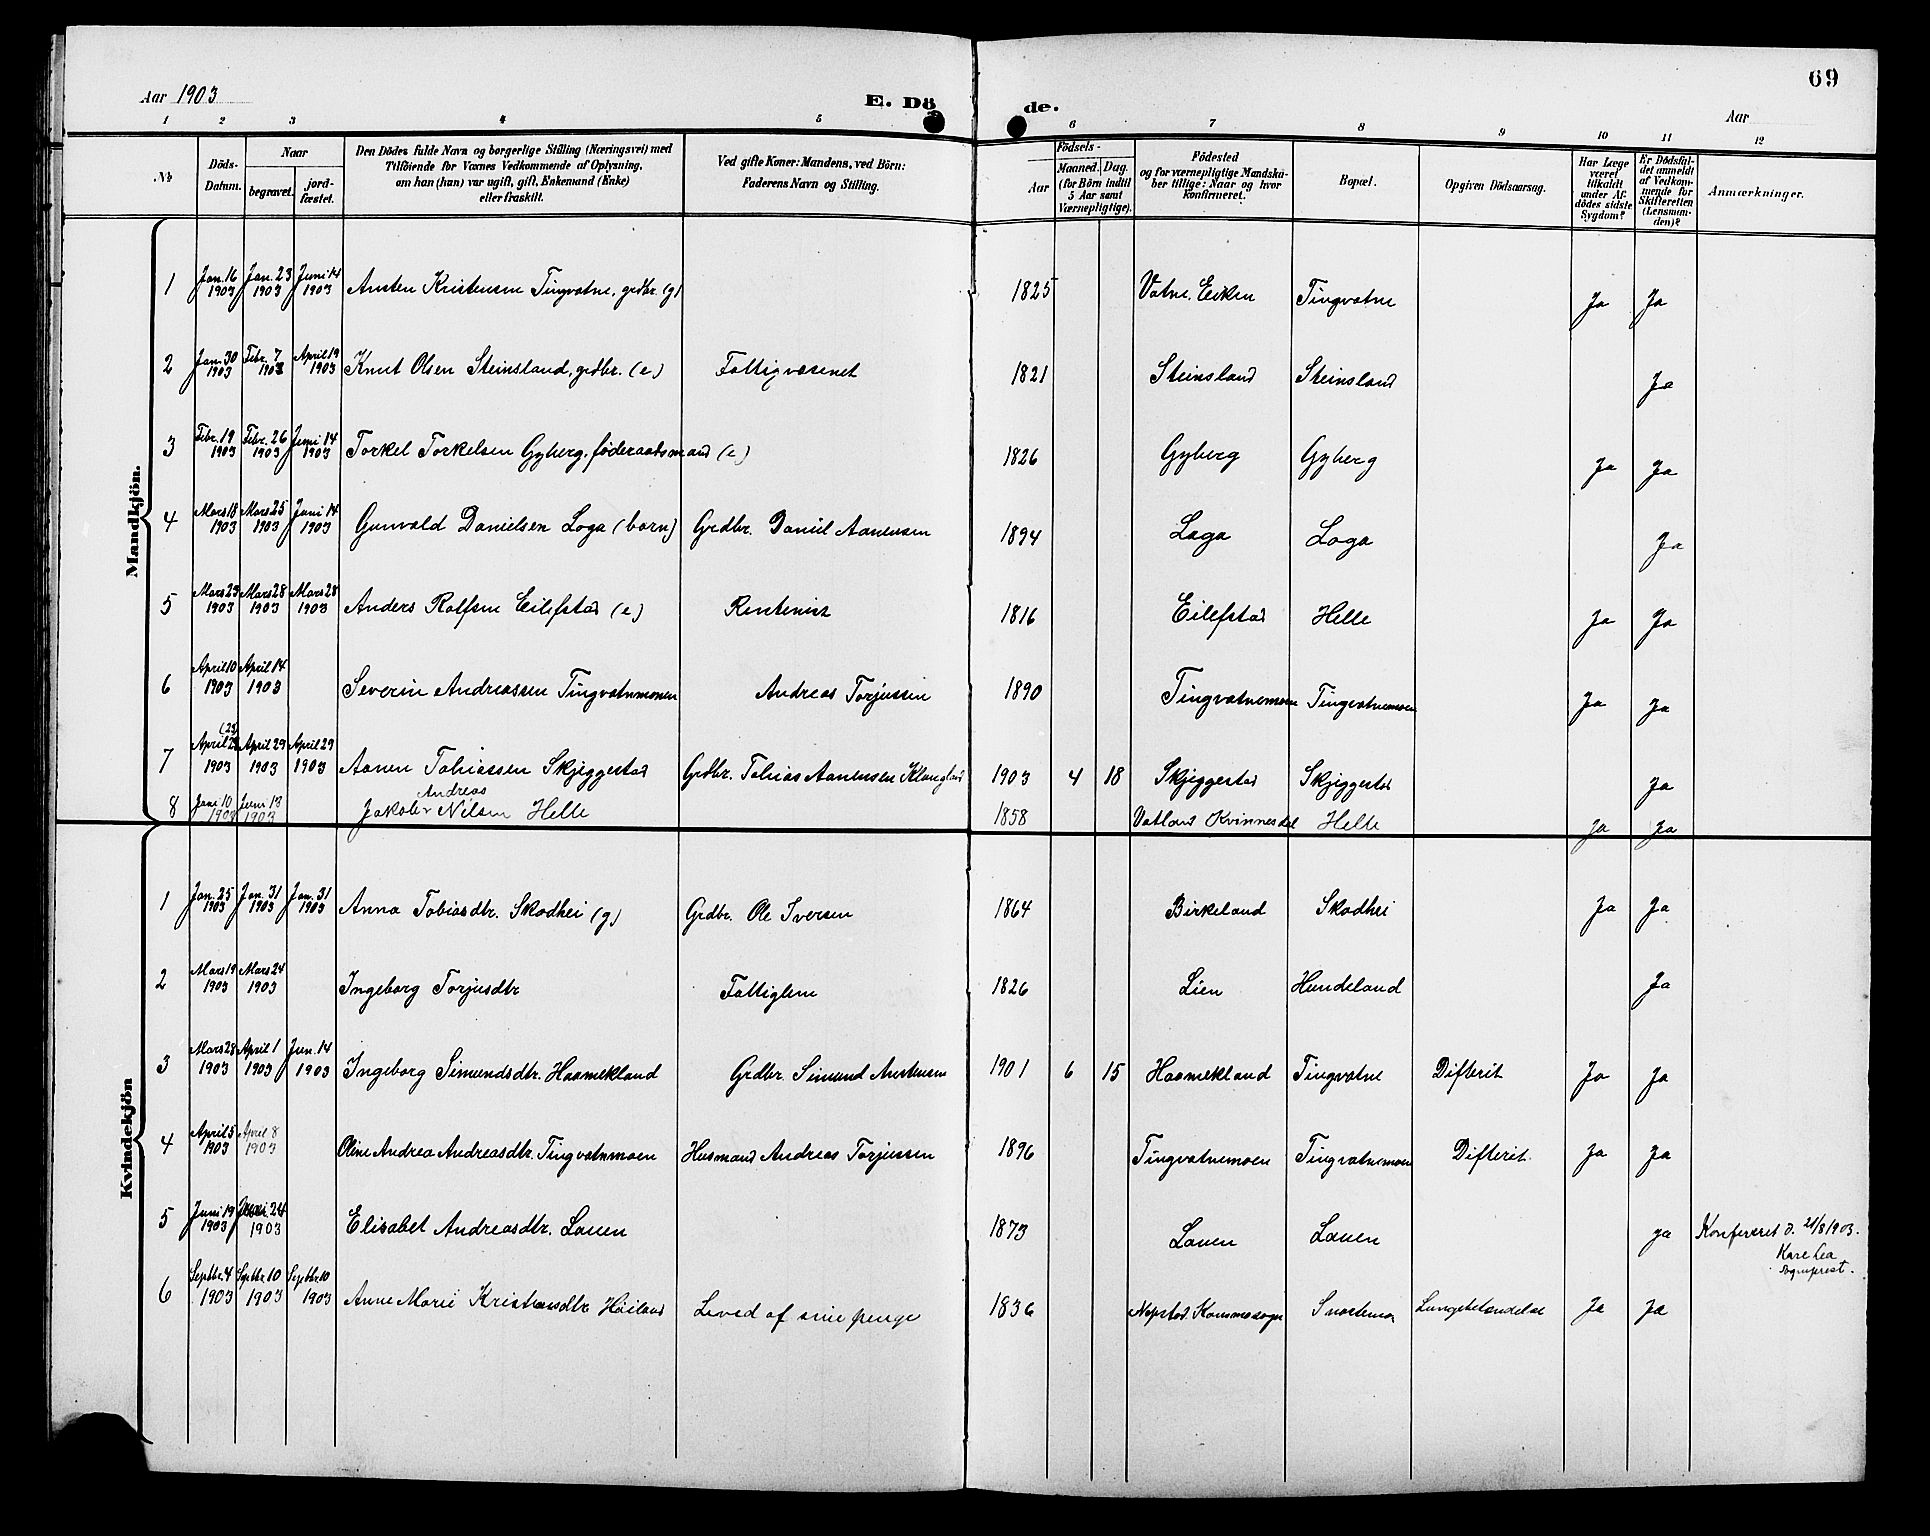 69
Aar 1903
E. Dö de.
Aar
1 2 3 4 5 6 7 8 9 10 11 12
№ Döds-Datum. Naar begravet. jordfæstet. Den Dödes fulde Navn og borgerlige Stilling (Næringsvei) med Tilföiende for Voxnes Vedkommende af Oplysning, om han (hun) var ugift, gift, Enkemand (Enke) eller fraskilt. Ved gifte Koner: Mandens, ved Börn: Faderens Navn og Stilling. Födsels- Aar Maaned. Dag. (for Börn indtil 5 Aar samt Værnepligtige). Födested og for værnepligtige Mandskaber tillige: Naar og hvor konfirmeret. Bopæl. Opgiven Dödsaarsag. Har Læge været tilkaldt under Afdödes sidste Sygdom? Er Dödsfaldet anmeldt af Vedkommende for Skifteretten (Lensmanden)? Anmærkninger.
Mandkjön.
1 Jan. 16 1903 Jan. 23 1903 Juni 14 1903 Austen Kristensen Tingvatne, grdbr. (g) 1825 Vatne, Eiken Tingvatne Ja Ja
2 Jan. 30 1903 Febr. 7 1903 April 19 1903 Knut Olsen Steinsland, grdbr. (e) Fattigvæsenet 1821 Steinsland Steinsland Ja
3 Febr. 19 1903 Febr. 26 1903 Juni 14 1903 Torkel Torkelsen Gyberg, føderaadsmand (e) 1826 Gyberg Gyberg Ja Ja
4 Mars 18 1903 Mars 25 1903 Juni 14 1903 Gunvald Danielsen Loga (barn) Grdbr. Daniel Aanensen 1894 Loga Loga Ja
5 Mars 23 1903 Mars 28 1903 Mars 28 1903 Anders Rolfsen Eilefstad (e) Rentenist 1816 Eilefstad Helle Ja Ja
6 April 10 1903 April 14 1903 Severin Andreassen Tingvatnmonen Andreas Torjussen 1890 Tingvatnemoen Tingvatnemoen Ja Ja
(25)
7 April 1903 April 29 1903 April 29 1903 Aanen Tobiassen Skjeggestad Grdbr. Tobias Aanensen Klungland 1903 4 18 Skjeggestad Skjeggestad Ja
Andreas
8 Juni 10 1903 Juni 13 1903 Jakob Nilsen Helle 1858 Vatland Kvinnesdal Helle Ja Ja
Kvindekjön
1 Jan. 25 1903 Jan. 31 1903 Jan. 31 1903 Anna Tobiasdtr. Skodhei (g) Grdbr. Ole Iversen 1864 Birkeland Skodhei Ja Ja
2 Mars 19 1903 Mars 24 1903 Ingeborg Torjusdtr Fattiglem 1826 Lien Hundeland Ja
3 Mars 28 1903 April 1 1903 Jun. 14 1903 Ingeborg Simundsdtr. Haamekland Grdbr. Simund Austensen 1901 6 15 Haamekland Tingvatne Difterit Ja Ja
4 April 5 1903 April 8 1903 Oline Andrea Andreasdtr. Tingvatnmoen Husmand Andreas Torjussen 1896 Tingvatnemoen Tingvatnemoen Difterit. Ja Ja
5 Juni 19 1903 Juni 24 1903 Elisabet Andreasdtr. Lauen 1873 Lauen Lauen ja Konfereret d. 21/8 1903.
Kare Lea
Sogneprest.
6 Septbr. 4 1903 Septbr 10 1903 Septbr. 10 1903 Anne Marie Kristensdtr Høiland Leved af sine penge 1836 Snartemo Lungebetændelse Ja Ja